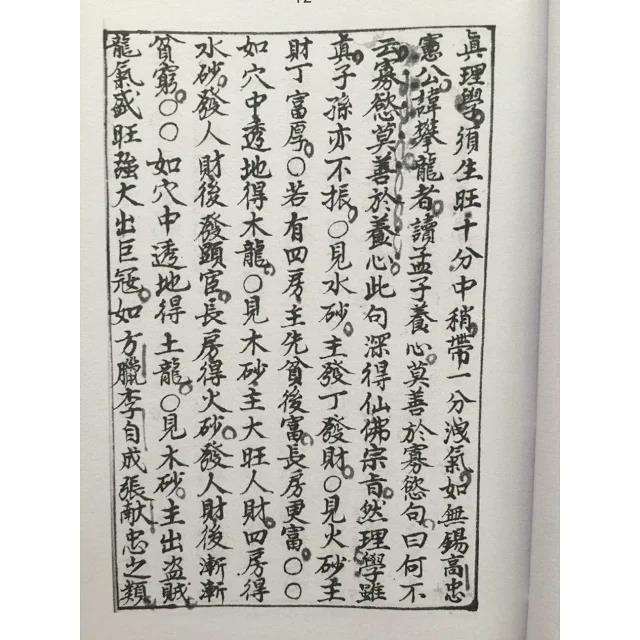 12
眞理學須生旺十分中稍帶一分洩氣如無錫高忠
憲公諱攀龍者讀孟子養心莫善於寡慾句曰何不
云寡慾莫善於養心此句深得仙佛宗旨然理學雖
眞子孫亦不振○見水砂主發丁發財○見火砂主
財丁富厚○若有四房主先貧後富長房更富○○
如穴中透地得木龍○見木砂主大旺人財四房得
水砂發人財後發顕宦長房得火砂發人財後漸漸
貧窮○○如穴中透地得土龍○見木砂主出盜賊
龍氣盛旺強大出巨冦如方臘李自成張献忠之類